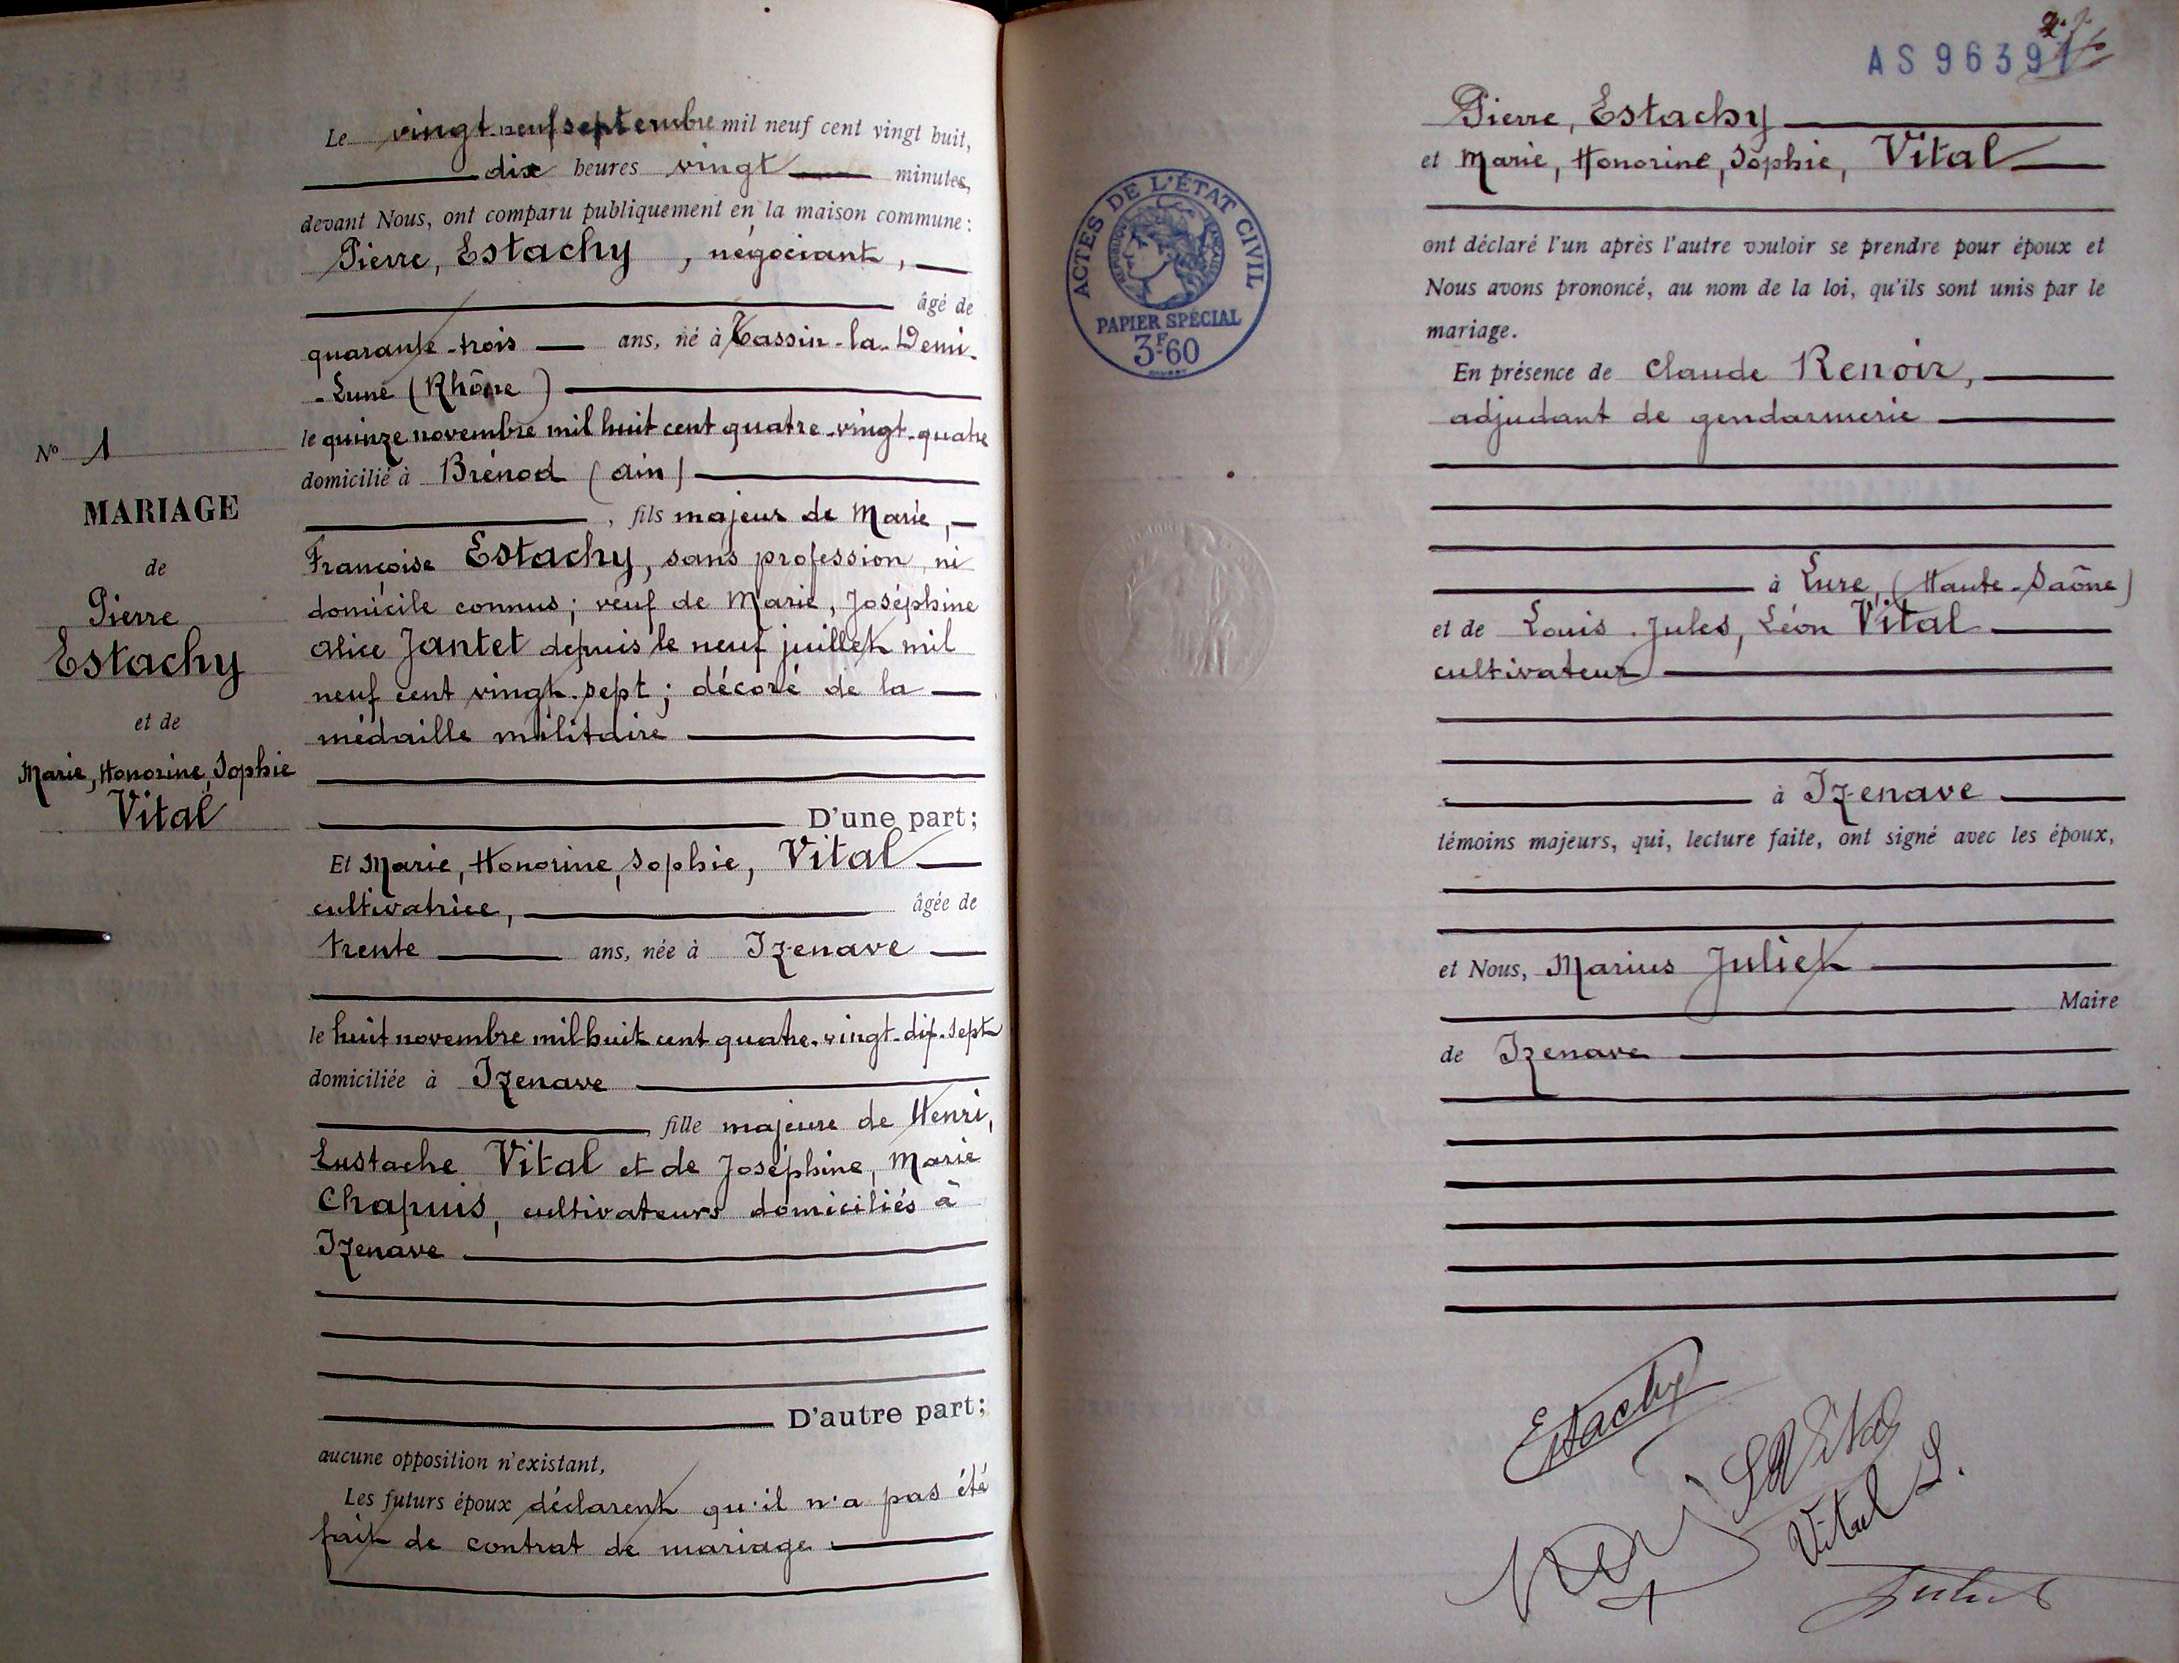 Le vingt-neuf septembre mil neuf cent vingt huit,
dix heures vingt minutes,
devant Nous, ont comparu publiquement en la maison commune:
Pierre, Estachy, négociant,
âgé de
quarante-trois ans, né à Tassin-la-Demi-
-Lune (Rhône)
le quinze novembre mil huit cent quatre-vingt-quatre
domicilié à Brénod (Ain)
, fils majeur de Marie,
Françoise Estachy, sans profession, ni
domicile connus; veuf de Marie, Joséphine
Alice Jantet depuis le neuf juillet mil
neuf cent vingt-sept; décoré de la
médaille militaire
D'une part;
Et Marie, Honorine, Sophie, Vital
cultivatrice, âgée de
trente ans, née à Izenave
le huit novembre mil huit cent quatre-vingt-dix-sept
domiciliée à Izenave
, fille majeure de Henri,
Eustache Vital et de Joséphine, Marie
Chapuis, cultivateurs domiciliés à
Izenave
D'autre part;
aucune opposition n'existant,
Les futurs époux déclarent qu'il n'a pas été
fait de contrat de mariage
No 1
MARIAGE
de
Pierre
Estachy
et de
Marie, Honorine, Sophie
Vital
AS 96391
Pierre, Estachy
et Marie, Honorine, Sophie, Vital
ont déclaré l'un après l'autre vouloir se prendre pour époux et
Nous avons prononcé, au nom de la loi, qu'ils sont unis par le
mariage.
En présence de Claude Renoir,
adjudant de gendarmerie
à Lure, (Haute-Saône)
et de Louis, Jules, Léon Vital
cultivateur
à Izenave
témoins majeurs, qui, lecture faite, ont signé avec les époux,
et Nous, Marius Juliet
Maire
de Izenave
ACTES DE L'ÉTAT CIVIL
RÉPUBLIQUE FRANÇAISE
PAPIER SPÉCIAL
3F60
Estachy
Vital
Vital L.
Juliet